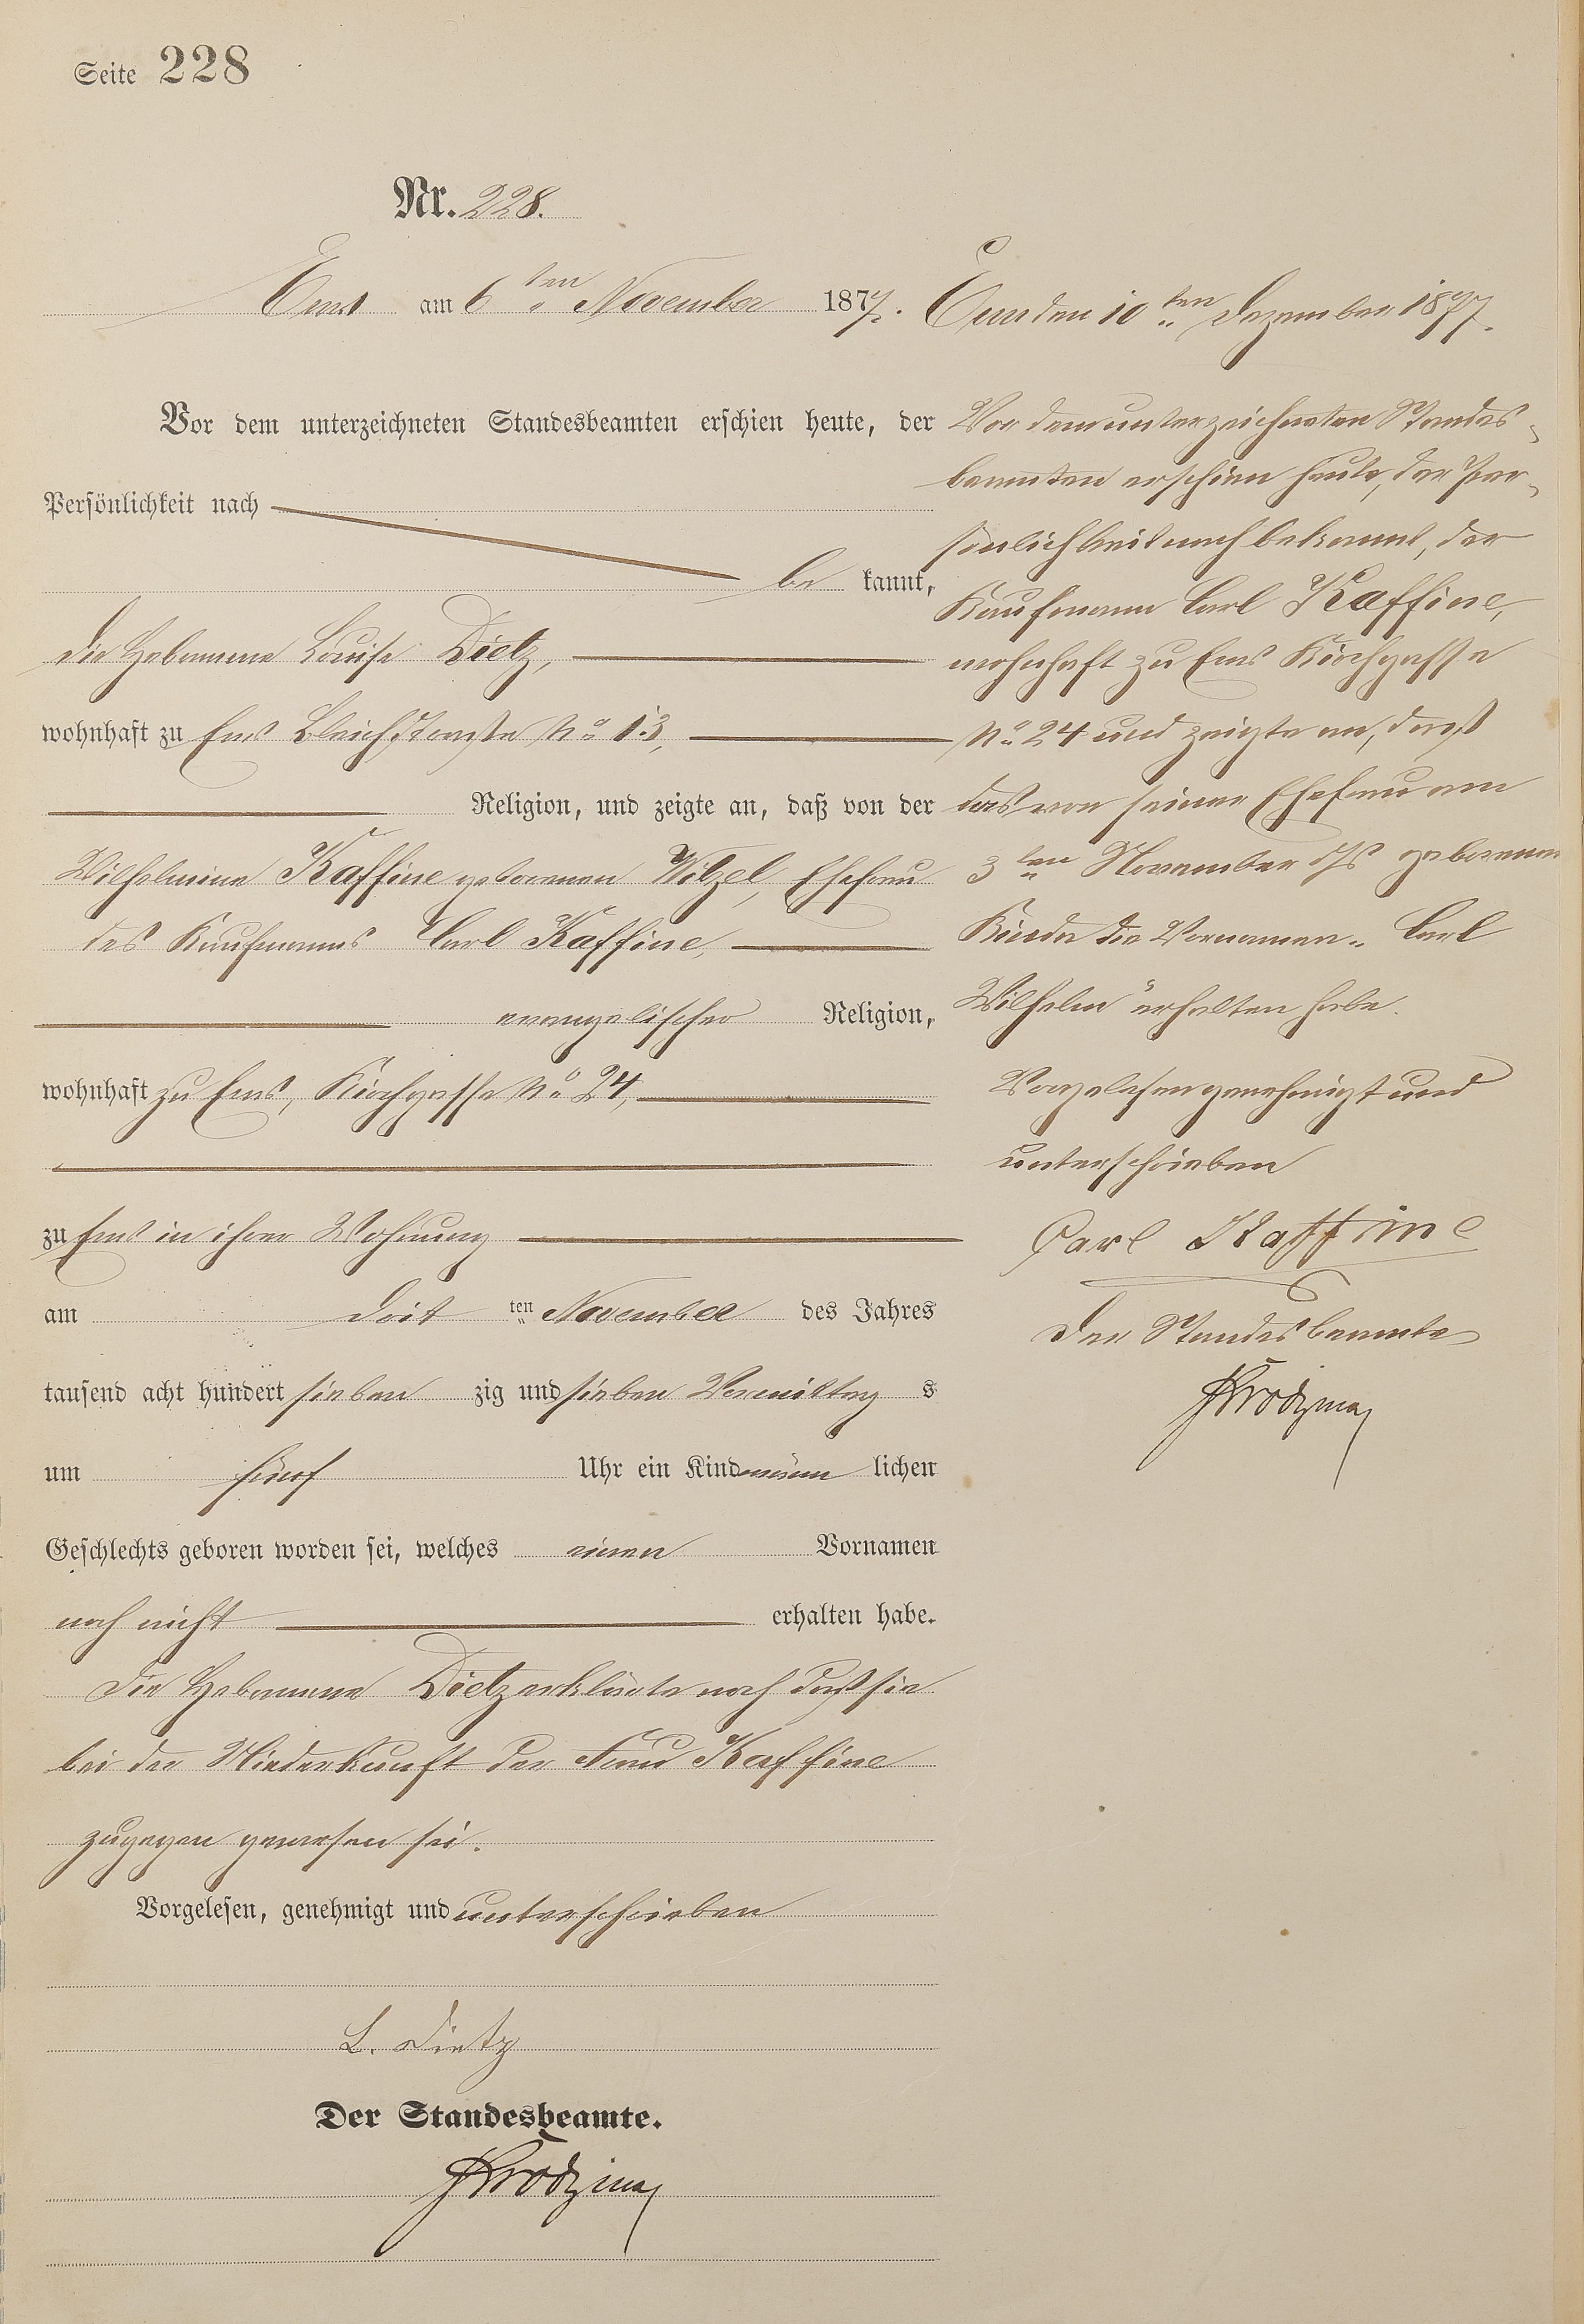 Seite 228
Nr. 228.
Ems am 6ten November 1877.
Vor dem unterzeichneten Standesbeamten erschien heute, der
Persönlichkeit nach
bekannt,
die Hebamme Louise Dietz,
wohnhaft zu Ems Bleichstraße No 13,
Religion, und zeigte an, daß von der
Wilhelmine Kaffine geborenen Witzel, Ehefrau
des Kaufmanns Carl Kaffine,
evangelischer Religion,
wohnhaft zu Ems, Kirchgasse No 24,
zu Ems in ihrer Wohnung
am dritten November des Jahres
tausend acht hundert siebenzig und sieben Vormittags
um fünf Uhr ein Kind männlichen
Geschlechts geboren worden sei, welches einen Vornamen
noch nicht erhalten habe.
Die Hebamme Dietz erklärte noch daß sie
bei der Niederkunft der Frau Kaffine
zugegen gewesen sei.
Vorgelesen, genehmigt und unterschrieben
L. Dietz
Der Standesbeamte.
Ems den 10ten Dezember 1877.
Vor dem unterzeichneten Standes-
beamten erschien heute, der Per-
sönlichkeit nach bekannt, der
Kaufmann Carl Kaffine,
wohnhaft zu Ems Kirchgasse
No 24 und zeigte an, daß
das von seiner Ehefrau am
3ten November d/s geborenen
Kinde die Vornamen „Carl
Wilhelm“ erhalten habe.
Vorgelesen genehmigt und
unterschrieben
Carl Kaffine
Der Standesbeamte